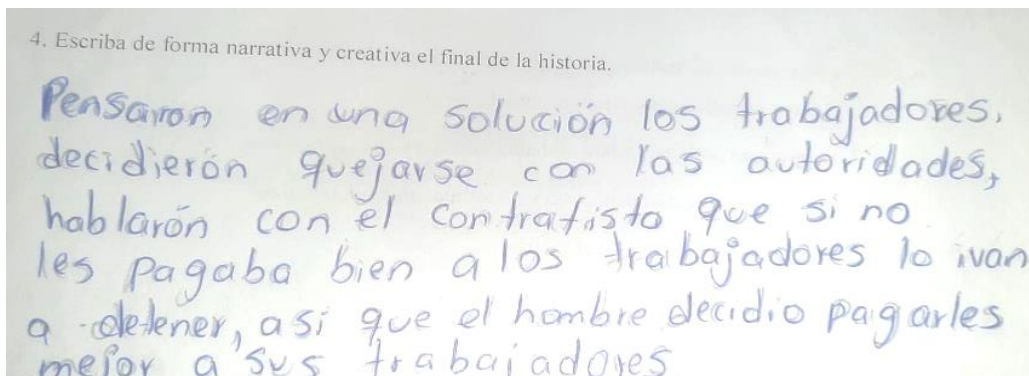 4. Escriba de forma narrativa y creativa el final de la historia.
Pensaron en una solución los trabajadores,
decidierón quejarse con las autoridades,
hablarón con el contratista que si no
les pagaba bien a los trabajadores lo ivan
a detener, asi que el hombre decidio pagarles
mejor a sus trabajadores